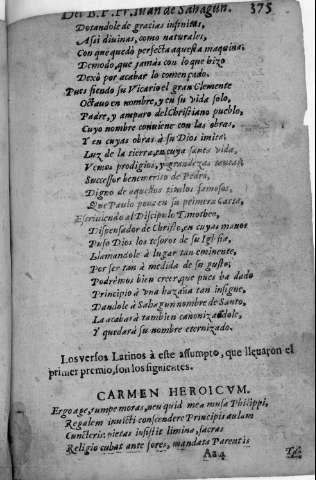 Del B. P. Fr. Iuan de Sahagun. 375
Dotandole de gracias infinitas,
Assi diuinas, como naturales,
Con que quedò perfecta aquesta maquina,
De modo, que jamàs con lo que hizo
Dexò por acabar lo començado.
Pues siendo su Vicario el gran Clemente
Octauo en nombre, y en su vida solo,
Padre, y amparo del Christiano pueblo,
Cuyo nombre conuiene con las obras,
Y en cuyas obras à su Dios imita;
Luz de la tierra, en cuya santa vida,
Vemos prodigios, y grandezas tantas,
Successor benemerito de Pedro,
Digno de aquestos titulos famosos,
Que Paulo puso en su primera Carta,
Escriuiendo al Discipulo Timotheo,
Dispensador de Christo, en cuyas manos
Puso Dios los tesoros de su Iglesia,
Llamandole à lugar tan eminente,
Por ser tan à medida de su gusto;
Podremos bien creer, que pues ha dado
Principio à vna hazaña tan insigne,
Dandole à Sahagun nombre de Santo,
La acabarà tambien canonizandole,
Y quedarà su nombre eternizado.
Los versos Latinos à este assumpto, que lleuaron el
primer premio, son los siguientes.
CARMEN HEROICVM.
Ergo age, rumpe moras, neu quid mea musa Philippi,
Regalem inuicti conscendere Principis aulam
Cuncteris: pietas insistit limina, sacras
Religio cubat ante fores, mandata Parentis
Aa4